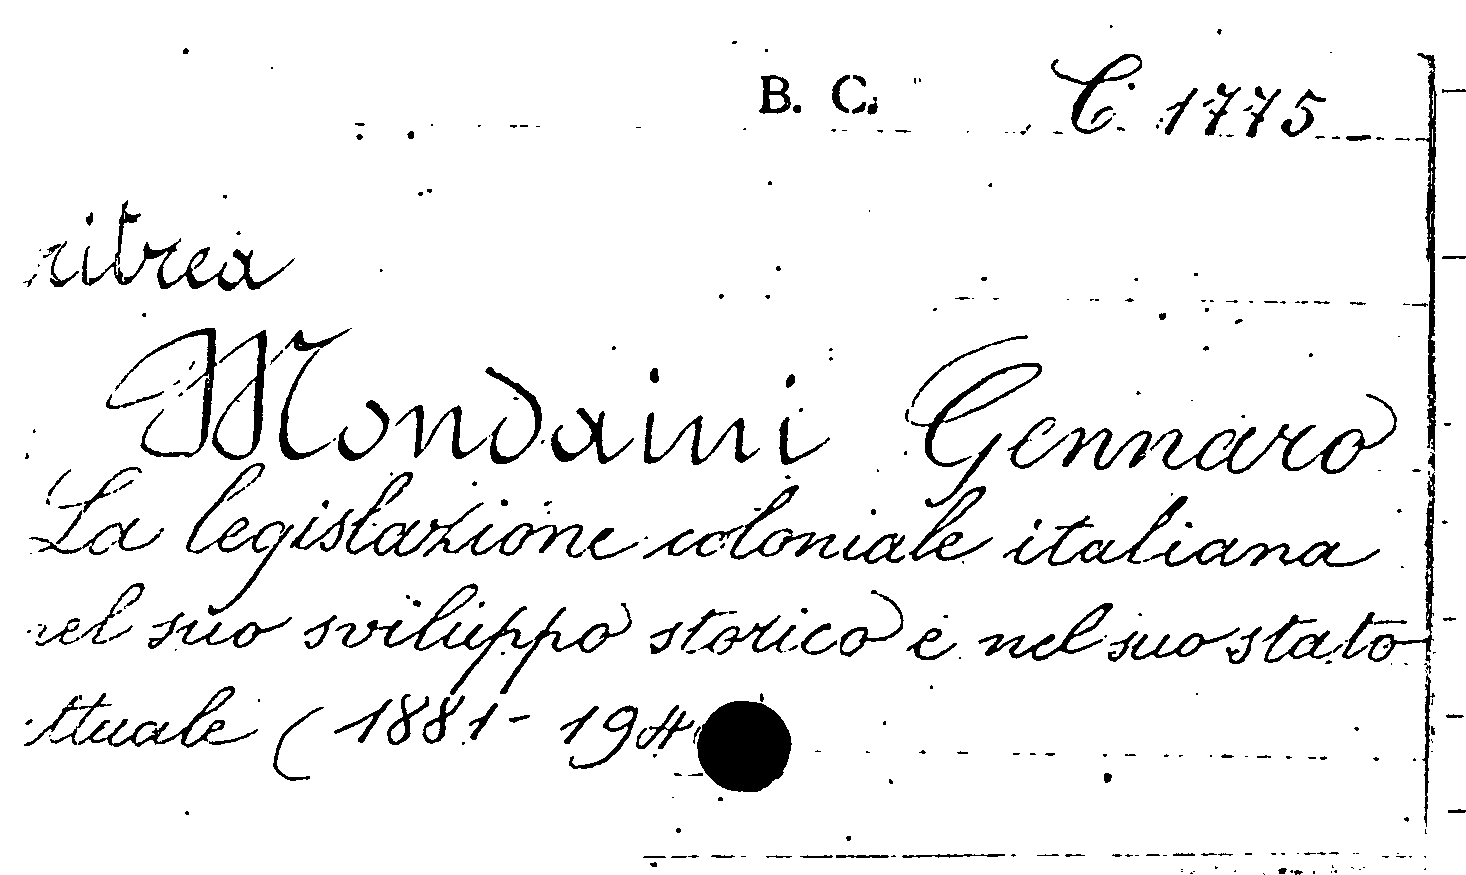 B. C. C 1775
ritrea
Mondaini Gennaro
La legislazione coloniale italiana
nel suo sviluppo storico e nel suo stato
ttuale (1881-194